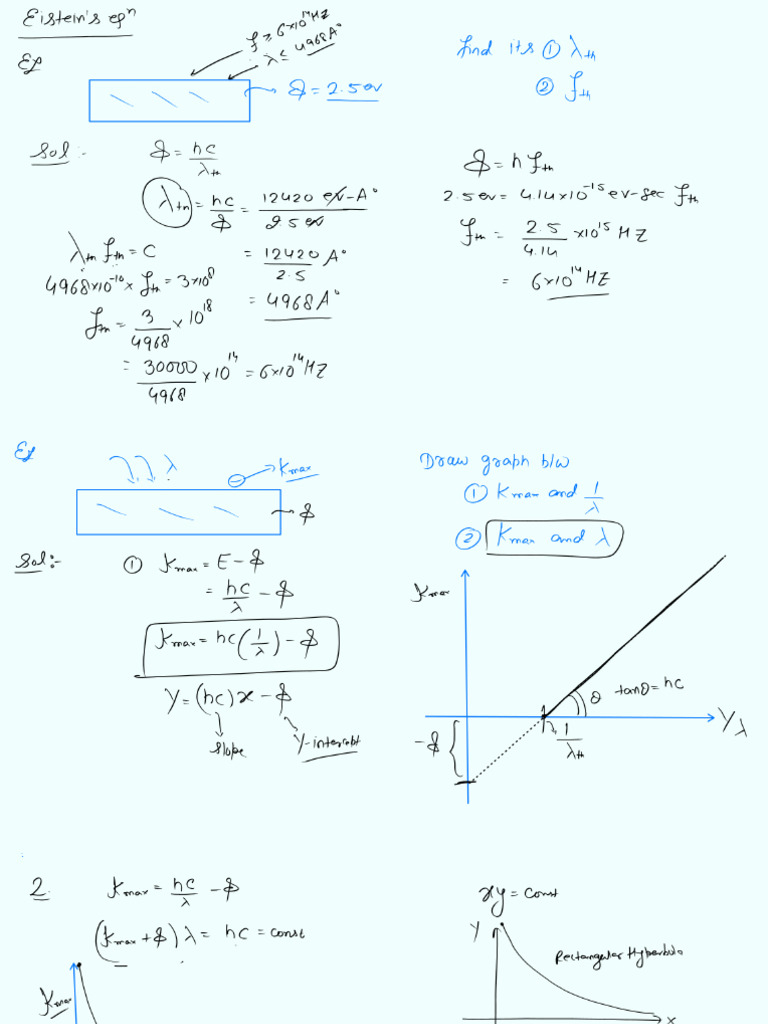 Eistein's eqⁿ
Ex
f ≥ 6×10¹⁴HZ
λ ≤ 4968A°
ϕ = 2.5 ev
find its ① λth
② fth
Sol :-
ϕ = hc/λth
λth = hc/ϕ = 12420 ev-A°/2.5 ev
= 12420/2.5 A°
= 4968A°
λth fth = C
4968×10⁻¹⁰ × fth = 3×10⁸
fth = 3/4968 × 10¹⁸
= 30000/4968 × 10¹⁴ = 6×10¹⁴HZ
ϕ = h fth
2.5 ev = 4.14×10⁻¹⁵ ev-sec fth
fth = 2.5/4.14 ×10¹⁵ HZ
= 6×10¹⁴HZ
Ex
λ
Kmax
ϕ
Draw graph b/w
① Kmax and 1/λ
② Kmax and λ
Sol:-
① Kmax = E - ϕ
= hc/λ - ϕ
Kmax = hc(1/λ) - ϕ
Y = (hc)x - ϕ
slope
Y-intercept
Kmax
θ tanθ = hc
1/λ
1/λth
-ϕ
2.
Kmax = hc/λ - ϕ
(Kmax + ϕ) λ = hc = const
Kmax
xy = const
Y
Rectangular Hyberbola
x